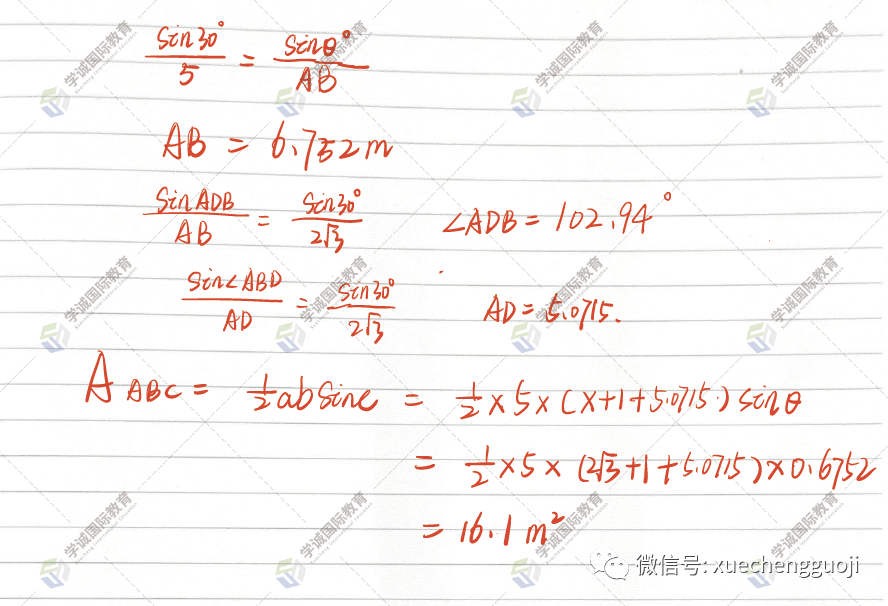 sin30°/5 = sinθ°/AB
AB = 6.752m
sinADB/AB = sin30°/2√3 ∠ADB = 102.94°
sin∠ABD/AD = sin30°/2√3 AD = 5.0715.
A ABC = 1/2 ab sinc = 1/2 × 5 × (x+1+5.0715) sinθ
= 1/2 × 5 × (2√3+1+5.0715) × 0.6752
= 16.1 m²
微信号: xuechengguoji
学诚国际教育